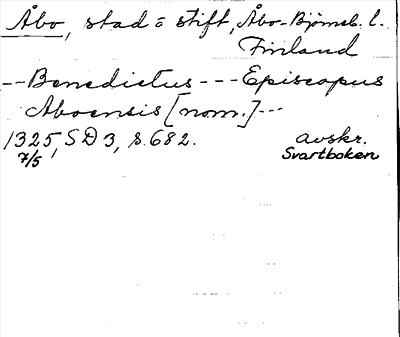 Åbo, stad = stift, Åbo-Björneb. l.
Finland
--Benedictus---Episcopus
Aboensis [nom.]---
1325, SD 3, s. 682. avskr.
7/5 Svartboken